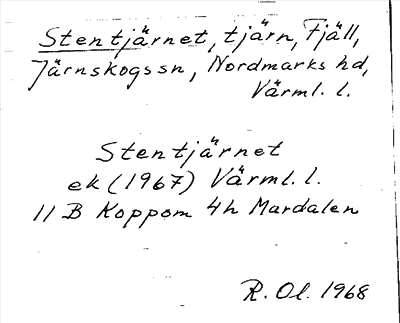 Stentjärnet, tjärn, Fjäll,
Järnskogs sn, Nordmarks hd,
Värml. l.
Stentjärnet
ek (1967) Värml. l.
11 B Koppom 4h Mardalen
R. Ol. 1968